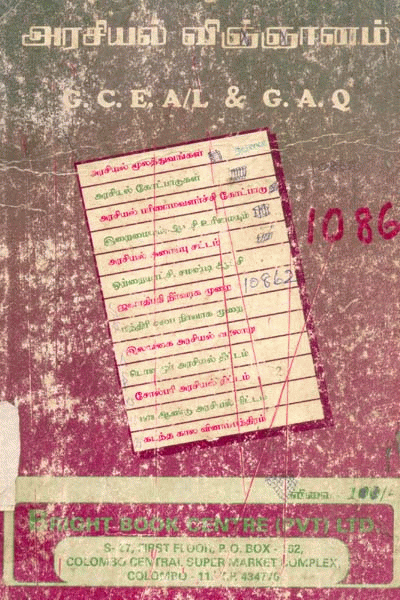 அரசியல் விஞ்ஞானம்
G. C. E. A/L & G. A. Q
அரசியல் மூலத்துவங்கள்
அரசியல் கோட்பாடுகள்
அரசியல் பரிணாமவளர்ச்சி கோட்பாடு
1086
அரசியல் அமைப்பு சட்டம்
ஒற்றையாட்சி, சமஷ்டி ஆட்சி
ஜனாதிபதி நிர்வாக முறை
10862
மந்திரி சபை நிர்வாக முறை
இலங்கை அரசியல் வரலாறு
டொனமூர் அரசியல் திட்டம்
சோல்பரி அரசியல் திட்டம்
அரசியல் திட்டம்
கடந்த கால வினாபத்திரம்
விலை 100/-
BRIGHT BOOK CENTRE (PVT) LTD.
S-27, FIRST FLOOR, P. O. BOX - 162,
COLOMBO CENTRAL SUPER MARKET COMPLEX,
COLOMBO - 11. T.P. 434770